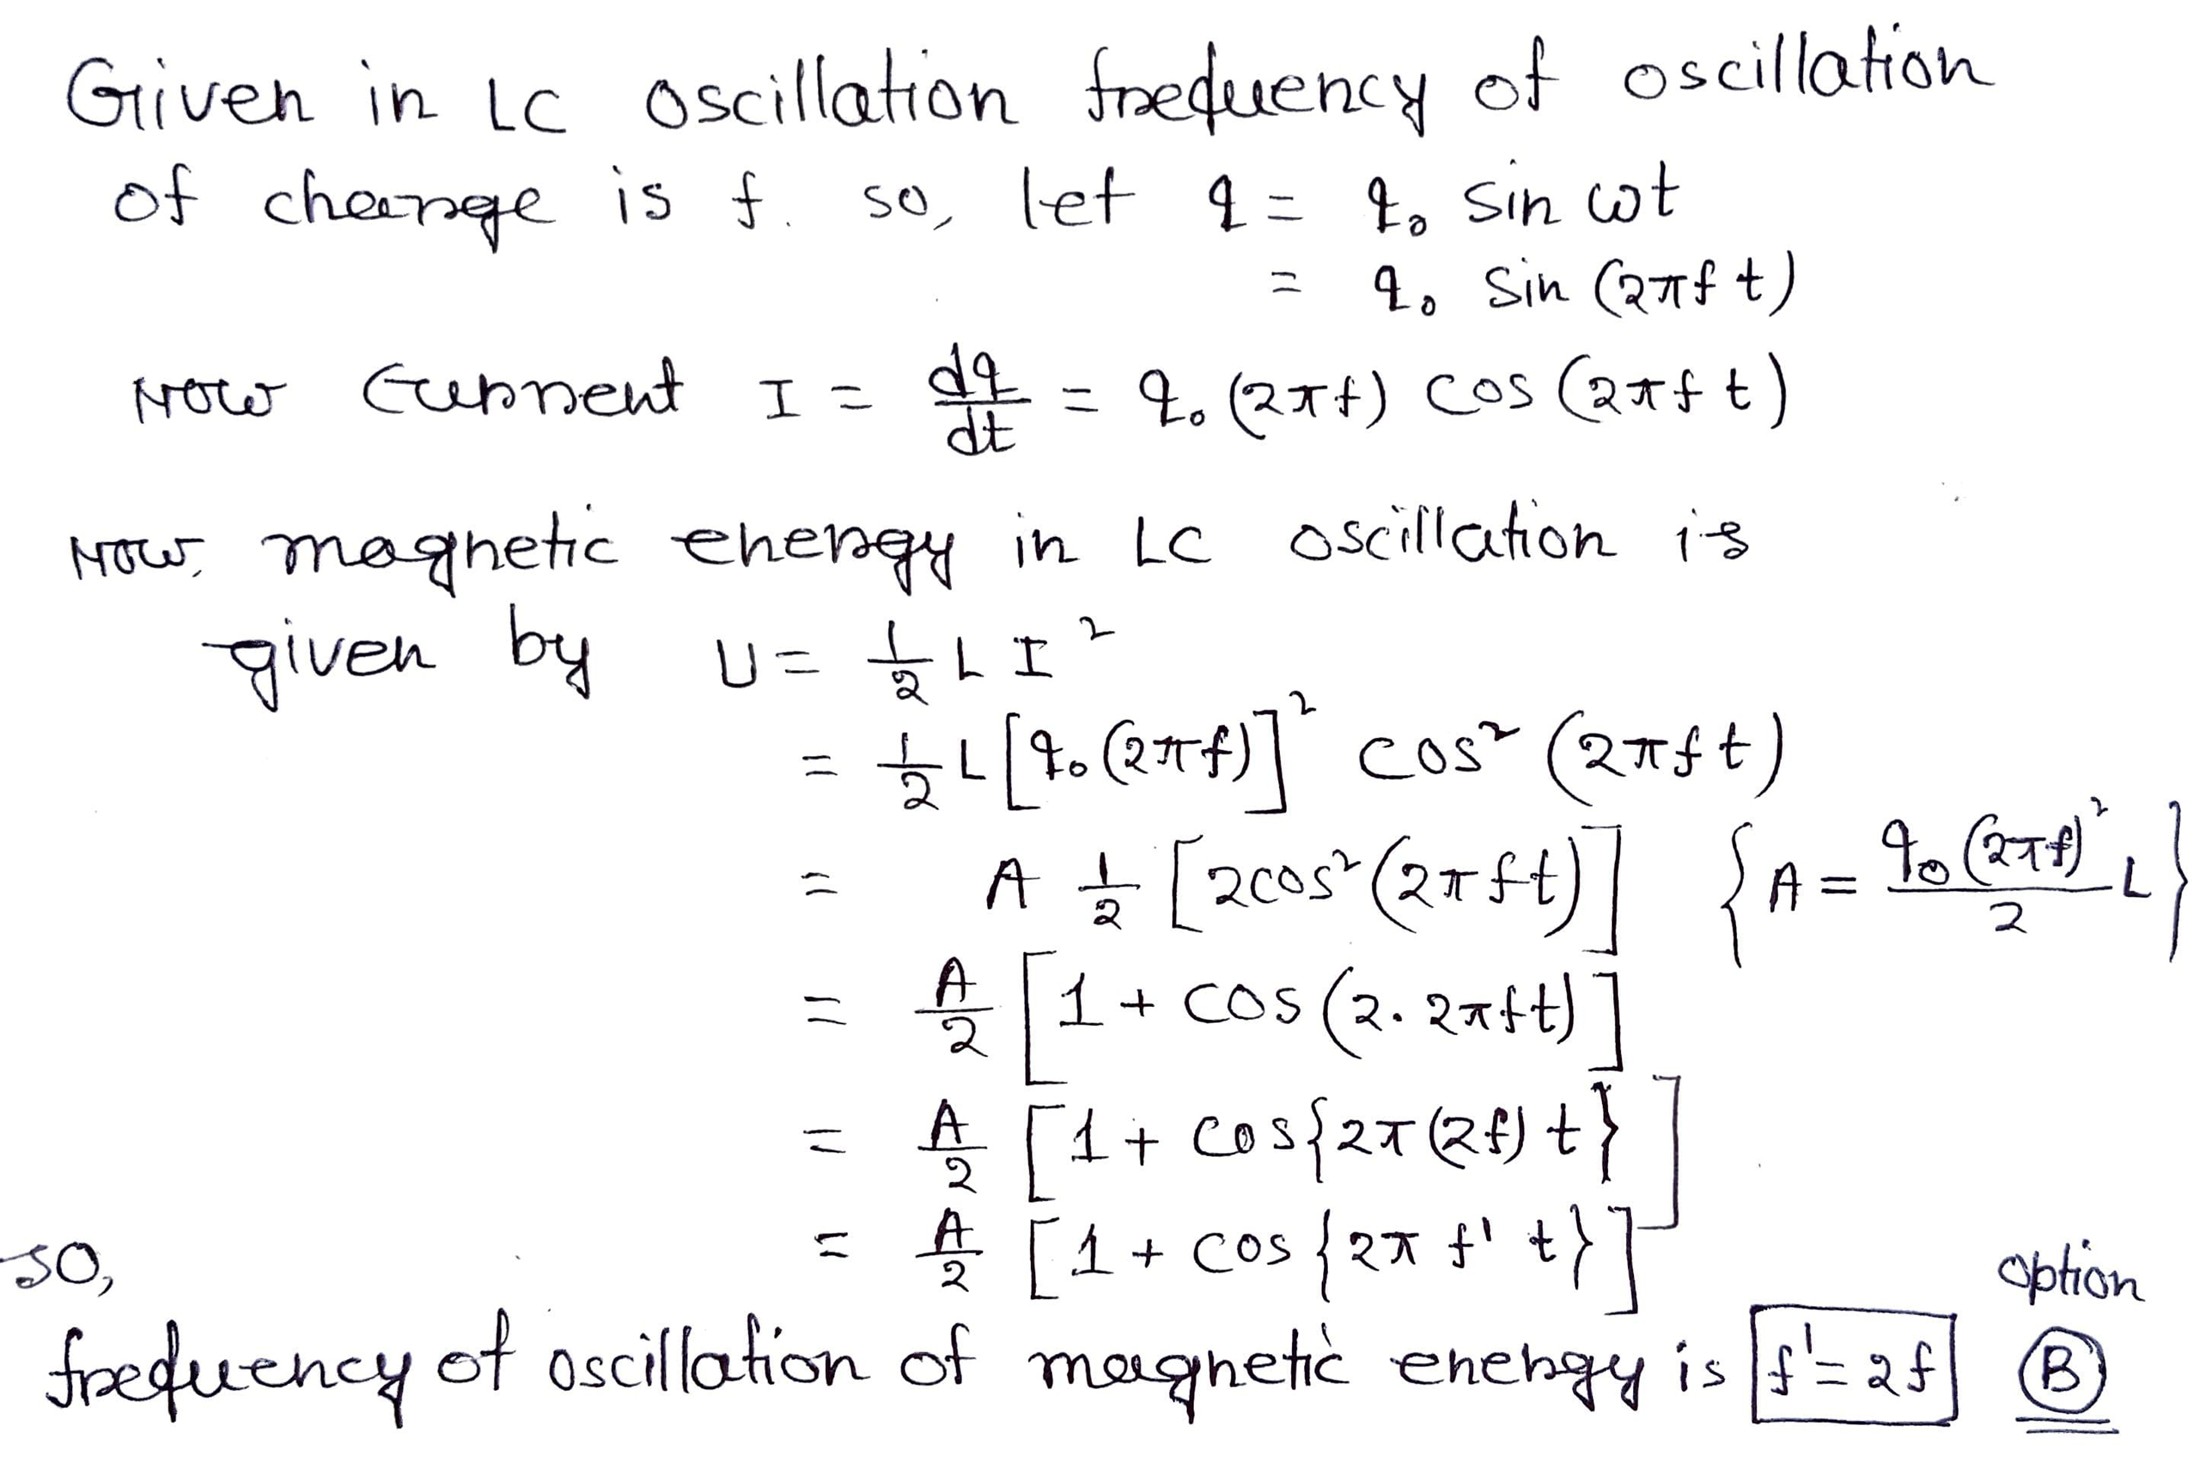 Given in LC oscillation frequency of oscillation
of charge is f. so, let q = q₀ sin ωt
= q₀ sin (2πf t)
Now current I = dq/dt = q₀ (2πf) cos (2πf t)
Now, magnetic energy in LC oscillation is
given by U = 1/2 L I²
= 1/2 L [q₀ (2πf)]² cos² (2πf t)
= A 1/2 [2cos² (2πft)] {A = q₀ (2πf)² L / 2}
= A/2 [1 + cos (2. 2πft)]
= A/2 [1 + cos{2π (2f) t}]
= A/2 [1 + cos {2π f' t}]
so, option
frequency of oscillation of magnetic energy is f' = 2f B